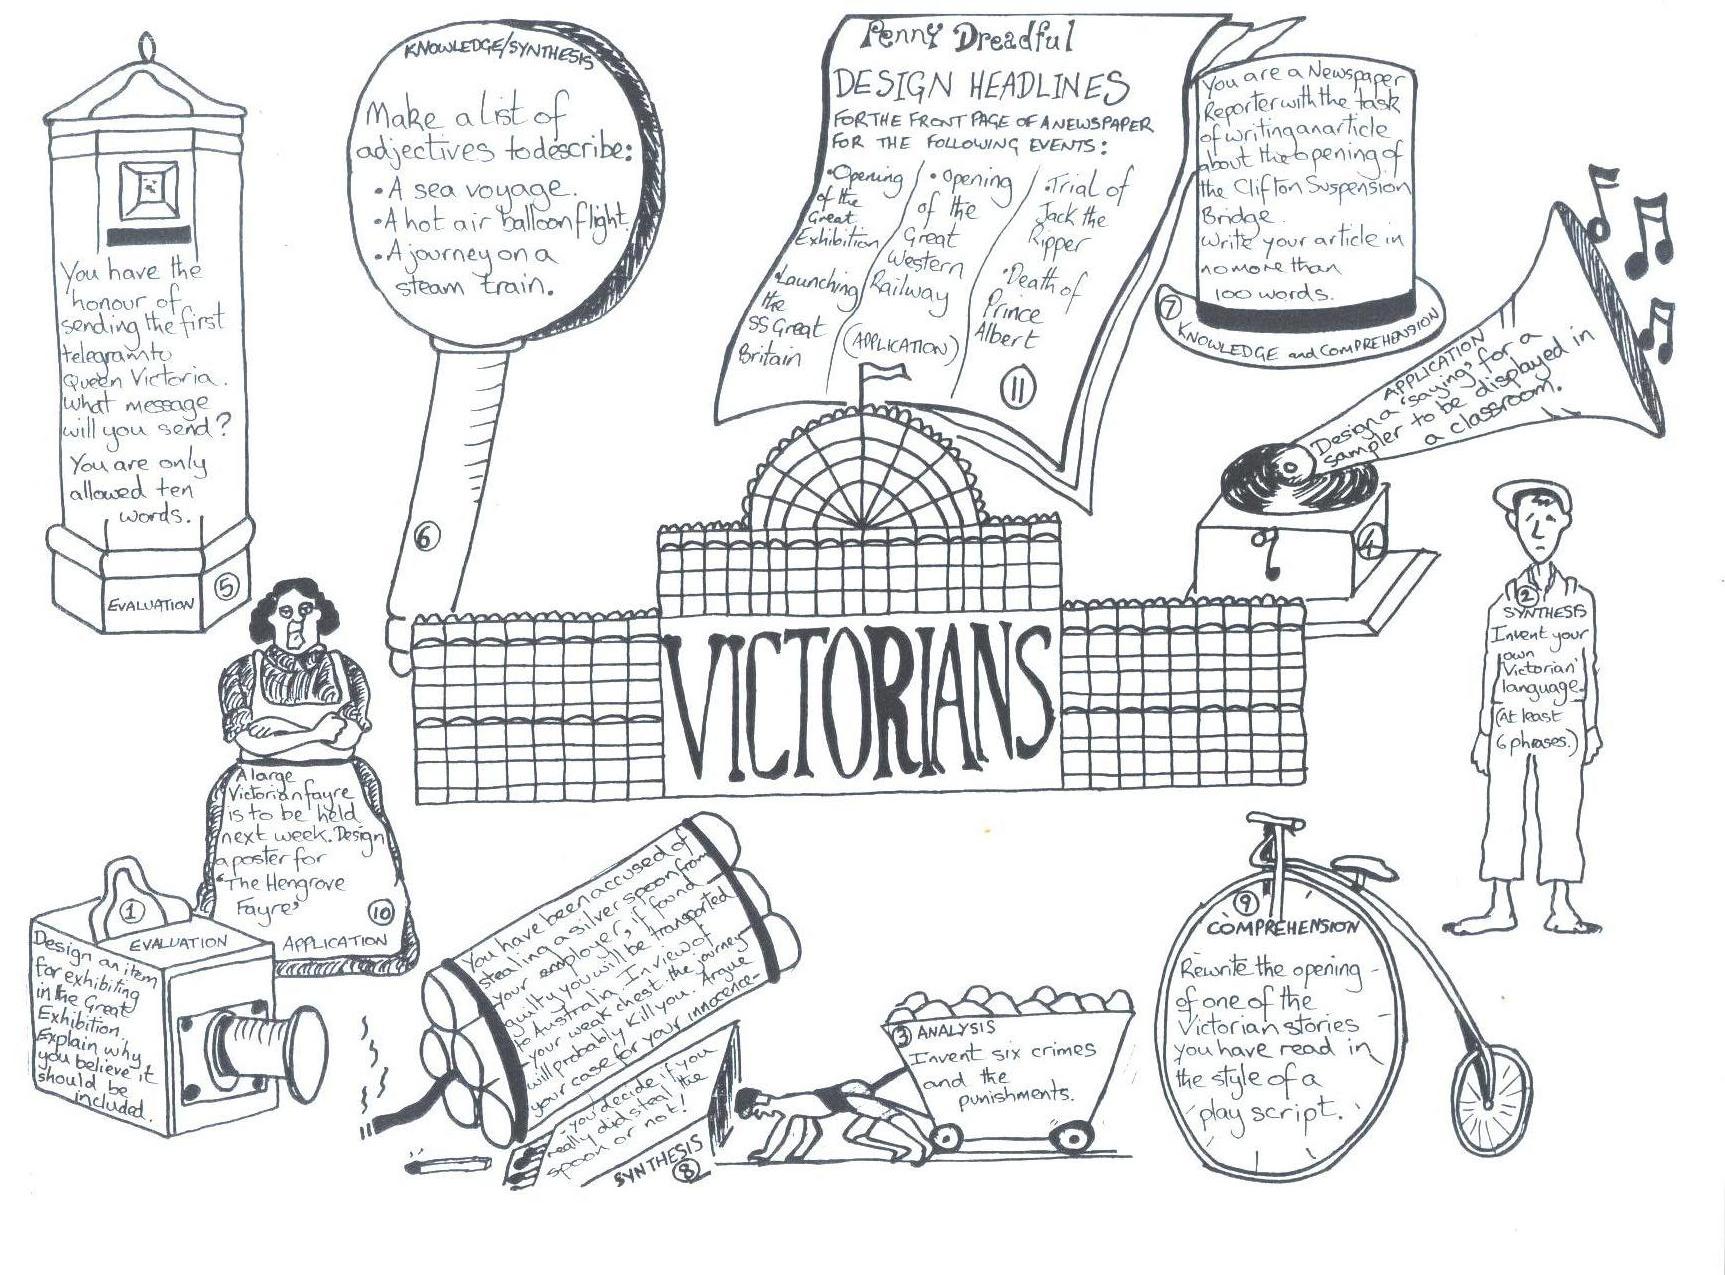 KNOWLEDGE/SYNTHESIS
Make a list of
adjectives to describe:
• A sea voyage.
• A hot air balloon flight.
• A journey on a
steam train.
6
Penny Dreadful
DESIGN HEADLINES
FOR THE FRONT PAGE OF A NEWSPAPER
FOR THE FOLLOWING EVENTS:
• Opening
of the
Great
Exhibition
• Launching
the
SS Great
Britain
• Opening
of the
Great
Western
Railway
(APPLICATION)
• Trial of
Jack the
Ripper
• Death of
Prince
Albert
11
You are a Newspaper
Reporter with the task
of writing an article
about the opening of
the Clifton Suspension
Bridge.
Write your article in
no more than
100 words.
7
KNOWLEDGE and COMPREHENSION
You have the
honour of
sending the first
telegram to
Queen Victoria.
What message
will you send?
You are only
allowed ten
words.
EVALUATION
5
APPLICATION
Design a 'saying' for a
sampler to be displayed in
a classroom.
4
2
SYNTHESIS
Invent your
own
'Victorian'
language.
(At least
6 phrases.)
VICTORIANS
A large
Victorian fayre
is to be held
next week. Design
a poster for
'The Hengrove
Fayre'
10
APPLICATION
1
EVALUATION
Design an item
for exhibiting
in the Great
Exhibition.
Explain why
you believe it
should be
included.
You have been accused of
stealing a silver spoon from
your employer, if found
guilty you will be transported
to Australia. In view of
your weak chest, the journey
will probably kill you. Argue
your case for your innocence-
- you decide if you
really did steal the
spoon or not!
SYNTHESIS
8
3 ANALYSIS
Invent six crimes
and the
punishments.
9
COMPREHENSION
Rewrite the opening
of one of the
Victorian stories
you have read in
the style of a
play script.